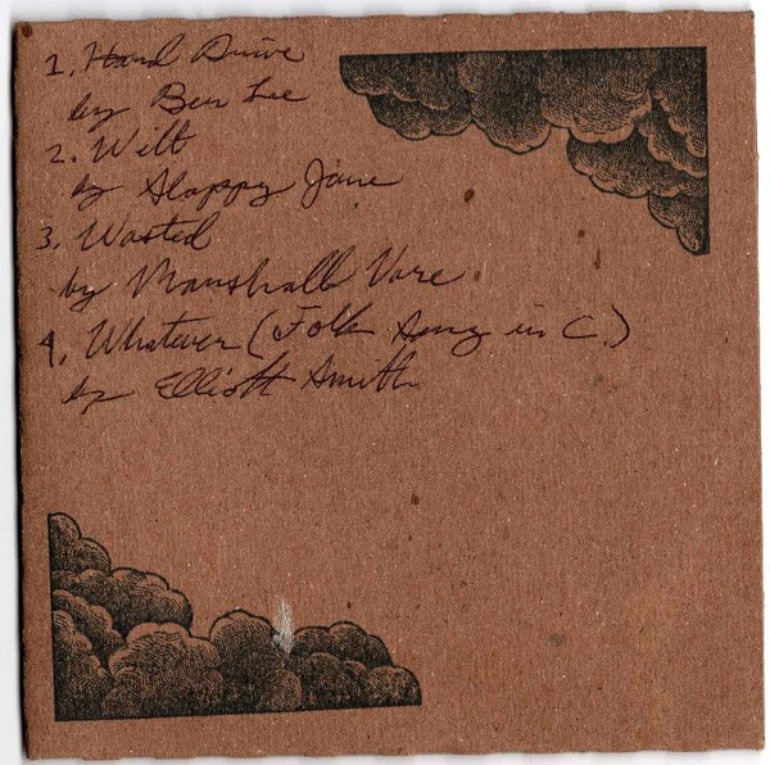 1. Hard Drive
by Ben Lee
2. Wilt
by Slappy Jane
3. Wasted
by Marshall Vore
4. Whatever (Folk Song in C.)
by Elliott Smith